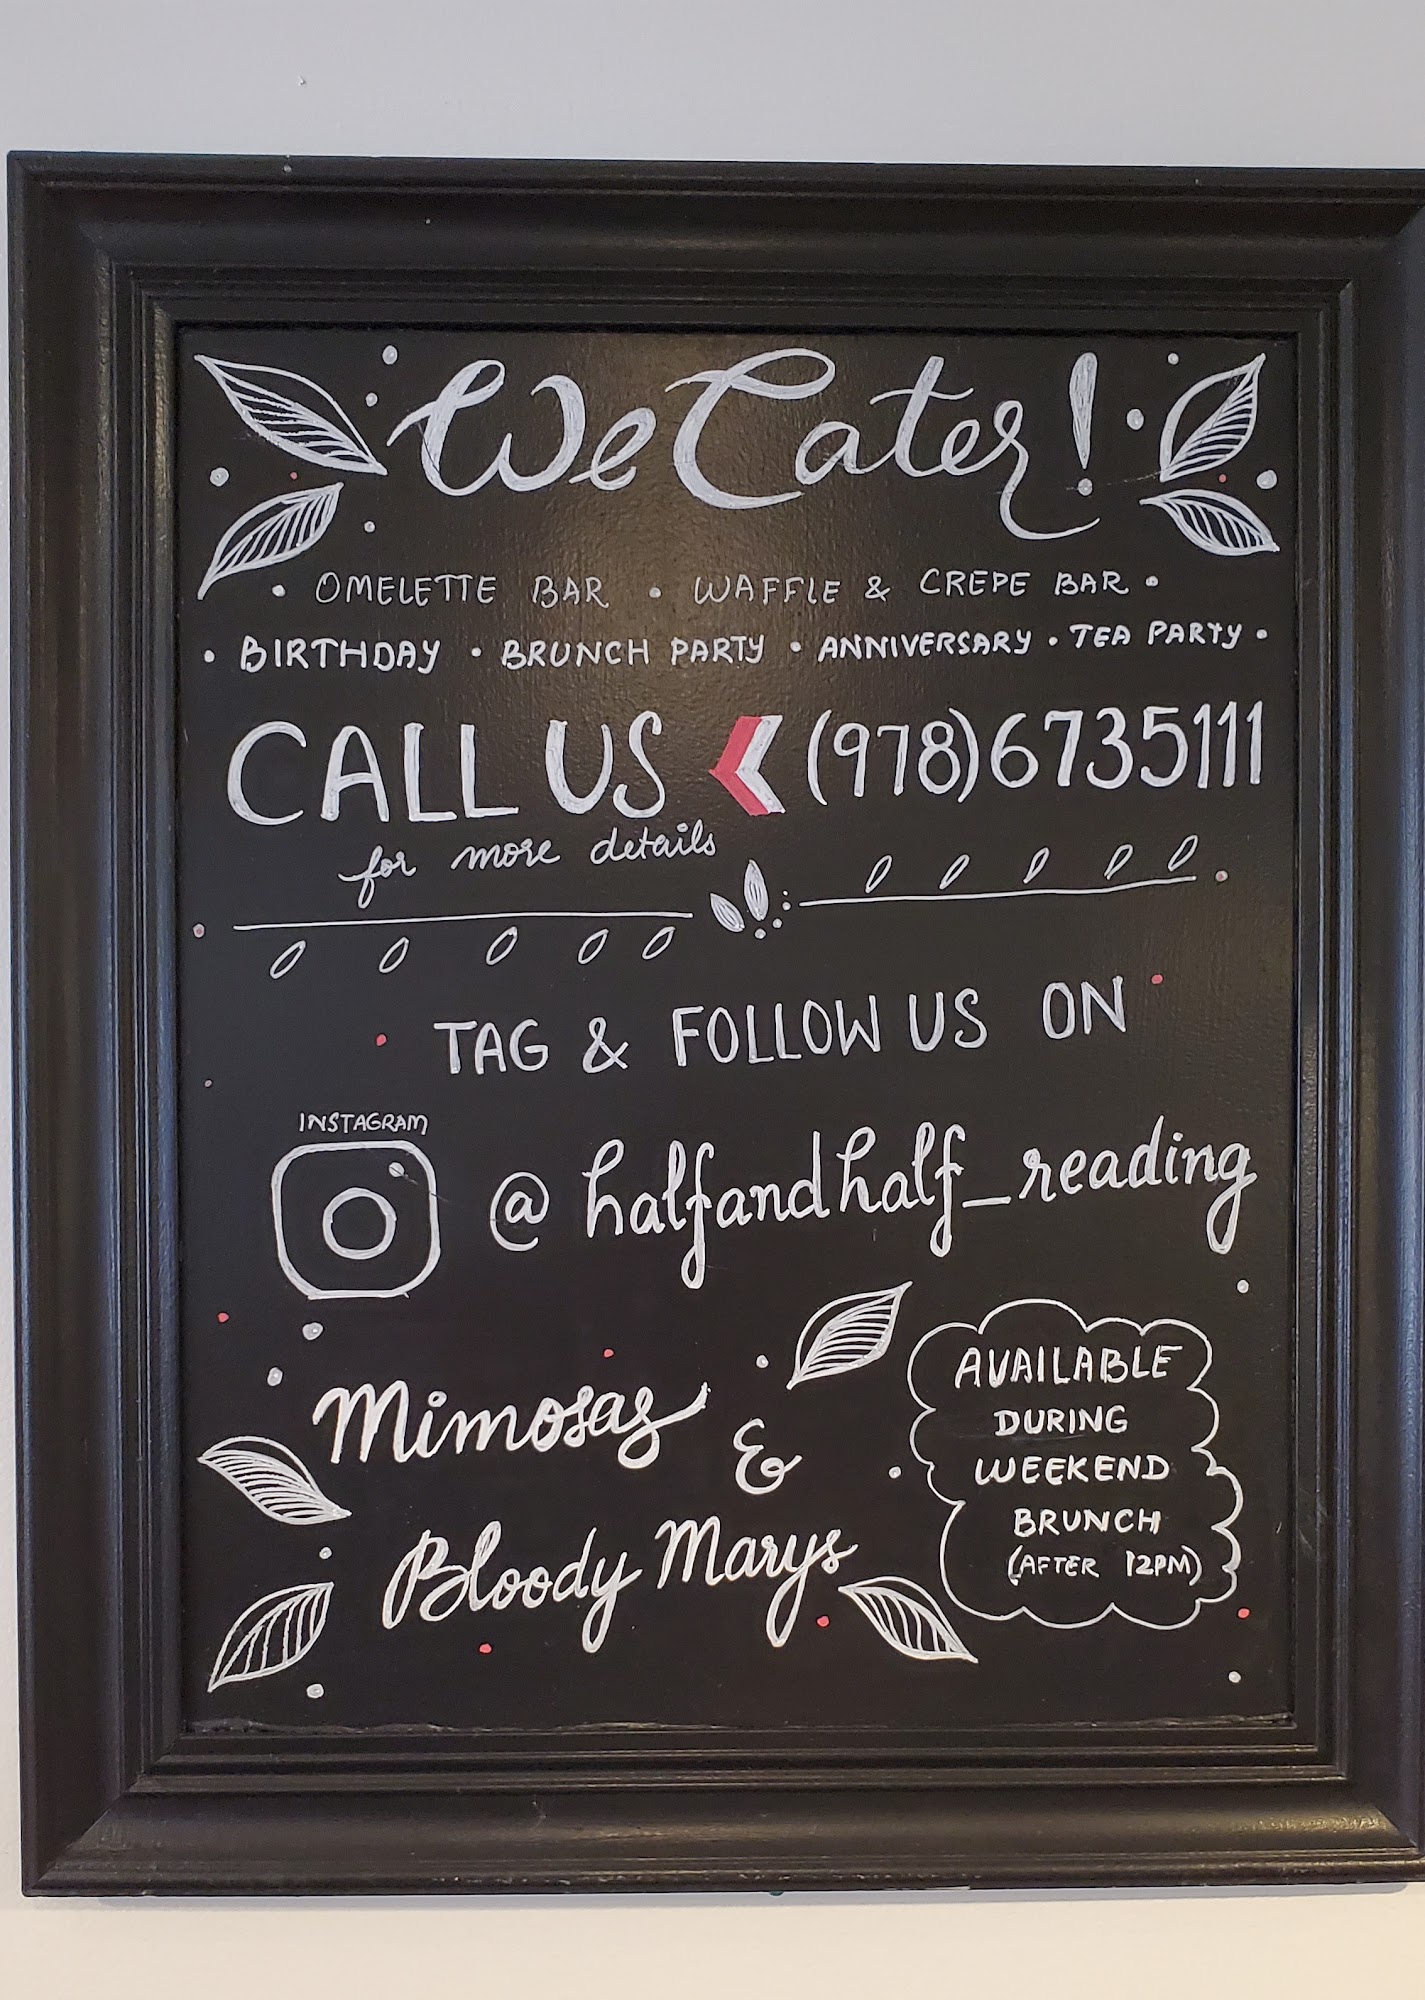 We Cater!
• OMELETTE BAR • WAFFLE & CREPE BAR •
• BIRTHDAY • BRUNCH PARTY • ANNIVERSARY • TEA PARTY •
CALL US (978)6735111
for more details
TAG & FOLLOW US ON
INSTAGRAM
@halfandhalf_reading
Mimosas
&
Bloody Marys
AVAILABLE
DURING
WEEKEND
BRUNCH
(AFTER 12PM)